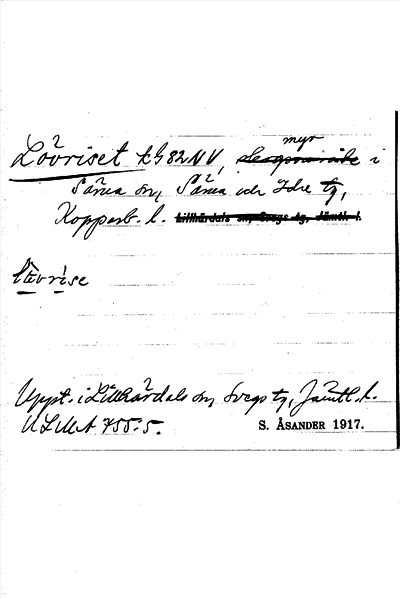 myr
Lövriset kB 82 NV, i
Särna sn, Särna och Idre tg,
Kopparb. l. Lillhärdals sn, Svegs tg, Jämtl. l.
Uppt. i Lillhärdals sn, Svegs tg, Jämtl. l.
ULMA 755:5. S. ÅSANDER 1917.